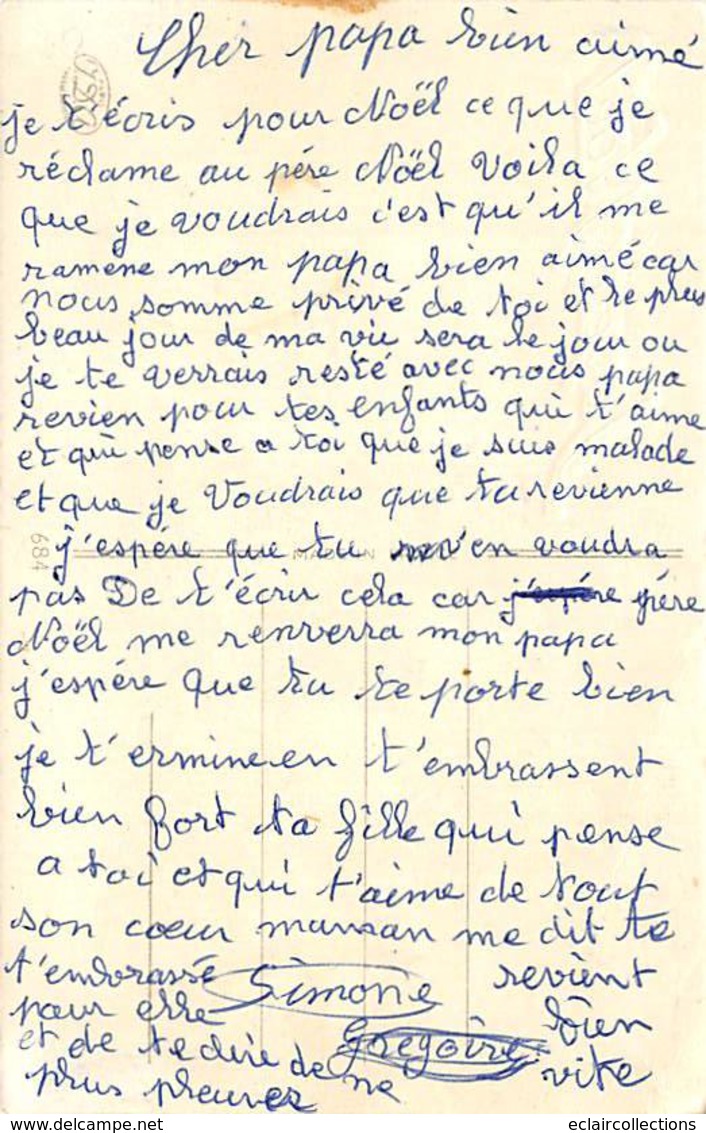 Cher papa bien aimé
je t'écris pour Noël ce que je
réclame au père Noël Voila ce
que je voudrais c'est qu'il me
ramene mon papa bien aimé car
nous somme privé de toi et le plus
beau jour de ma vie sera le jour ou
je te verrais resté avec nous papa
revien pour tes enfants qui t'aime
et qui pense a toi que je suis malade
et que je Voudrais que tu revienne
j'espére que tu m'en voudra
pas De t'écrir cela car père
Noël me renverra mon papa
j'espére que tu te porte bien
je t'ermine en t'embrassent
bien fort ta fille qui pense
a toi et qui t'aime de tout
son cœur maman me dit te
t'embrassé Simone revient
pour elle bien
et de te dire de Gregoire vite
plus pleurez ne
684
eclaircollections